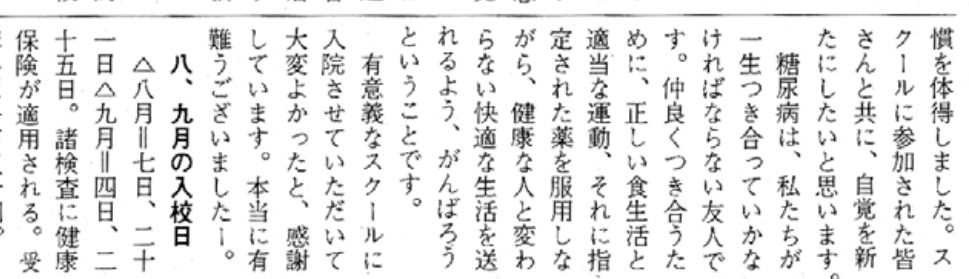 慣を体得しました。ス
クールに参加された皆
さんと共に、自覚を新
たにしたいと思います。
糖尿病は、私たちが
一生つき合っていかな
ければならない友人で
す。仲良くつき合うた
めに、正しい食生活と
適当な運動、それに指
定された薬を服用しな
がら、健康な人と変わ
らない快適な生活を送
れるよう、がんばろう
ということです。
有意義なスクールに
入院させていただいて
大変よかったと、感謝
しています。本当に有
難うございましたー。
八、九月の入校日
△八月＝七日、二十
一日△九月＝四日、二
十五日。諸検査に健康
保険が適用される。受